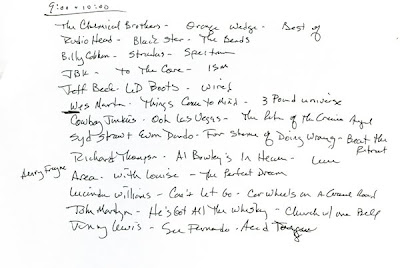 9:00 - 10:00
The Chemical Brothers - Orange Wedge - Best of
Radio Head - Black Star - The Bends
Billy Cobham - Stratus - Spectrum
JBK - To The Core - ISM
Jeff Beck - LED Boots - Wired
Wes Martin - Things Come to Mind - 3 Pound universe
Cowboy Junkies - Ooh Las Vegas - The Return of the Grievous Angel
Syd Straw + Evan Dando - For Shame of Doing Wrong - Beat the Retreat
Richard Thompson - Al Bowlly's In Heaven - Live
Henry Frayne
Area - With Louise - The Perfect Dream
Lucinda Williams - Can't Let Go - Car Wheels on A Gravel Road
John Martyn - He's Got All The Whisky - Church w/ one Bell
Jenny Lewis - See Fernando - Acid Tongue